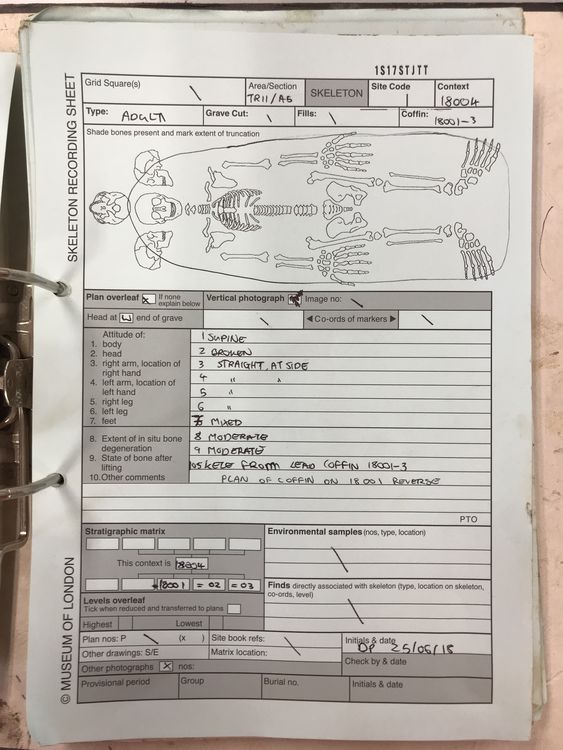 1S17STJTT
SKELETON RECORDING SHEET
Grid Square(s) \
Area/Section TR11/A5
SKELETON
Site Code |
Context 18004
Type: ADULT
Grave Cut: \
Fills: \
Coffin: 18001-3
Shade bones present and mark extent of truncation
Plan overleaf X If none explain below
Vertical photograph
Image no: \
Head at W end of grave \
◄ Co-ords of markers ► \
Attitude of:
1. body
2. head
3. right arm, location of right hand
4. left arm, location of left hand
5. right leg
6. left leg
7. feet
1 SUPINE
2 BROKEN
3 STRAIGHT, AT SIDE
4 " "
5 "
6 "
7 MIXED
8. Extent of in situ bone degeneration
9. State of bone after lifting
10. Other comments
8 MODERATE
9 MODERATE
10 SKELE FROM LEAD COFFIN 18001-3
PLAN OF COFFIN ON 18001 REVERSE
PTO
Stratigraphic matrix
This context is 18004
18001 = 02 = 03
Environmental samples (nos, type, location)
\
Finds directly associated with skeleton (type, location on skeleton, co-ords, level)
\
Levels overleaf
Tick when reduced and transferred to plans
Highest
Lowest
Plan nos: P \ (x )
Site book refs: \
Initials & date
DP 25/06/18
Other drawings: S/E
Matrix location: \
Check by & date
Other photographs X nos:
Provisional period
Group
Burial no.
Initials & date
© MUSEUM OF LONDON